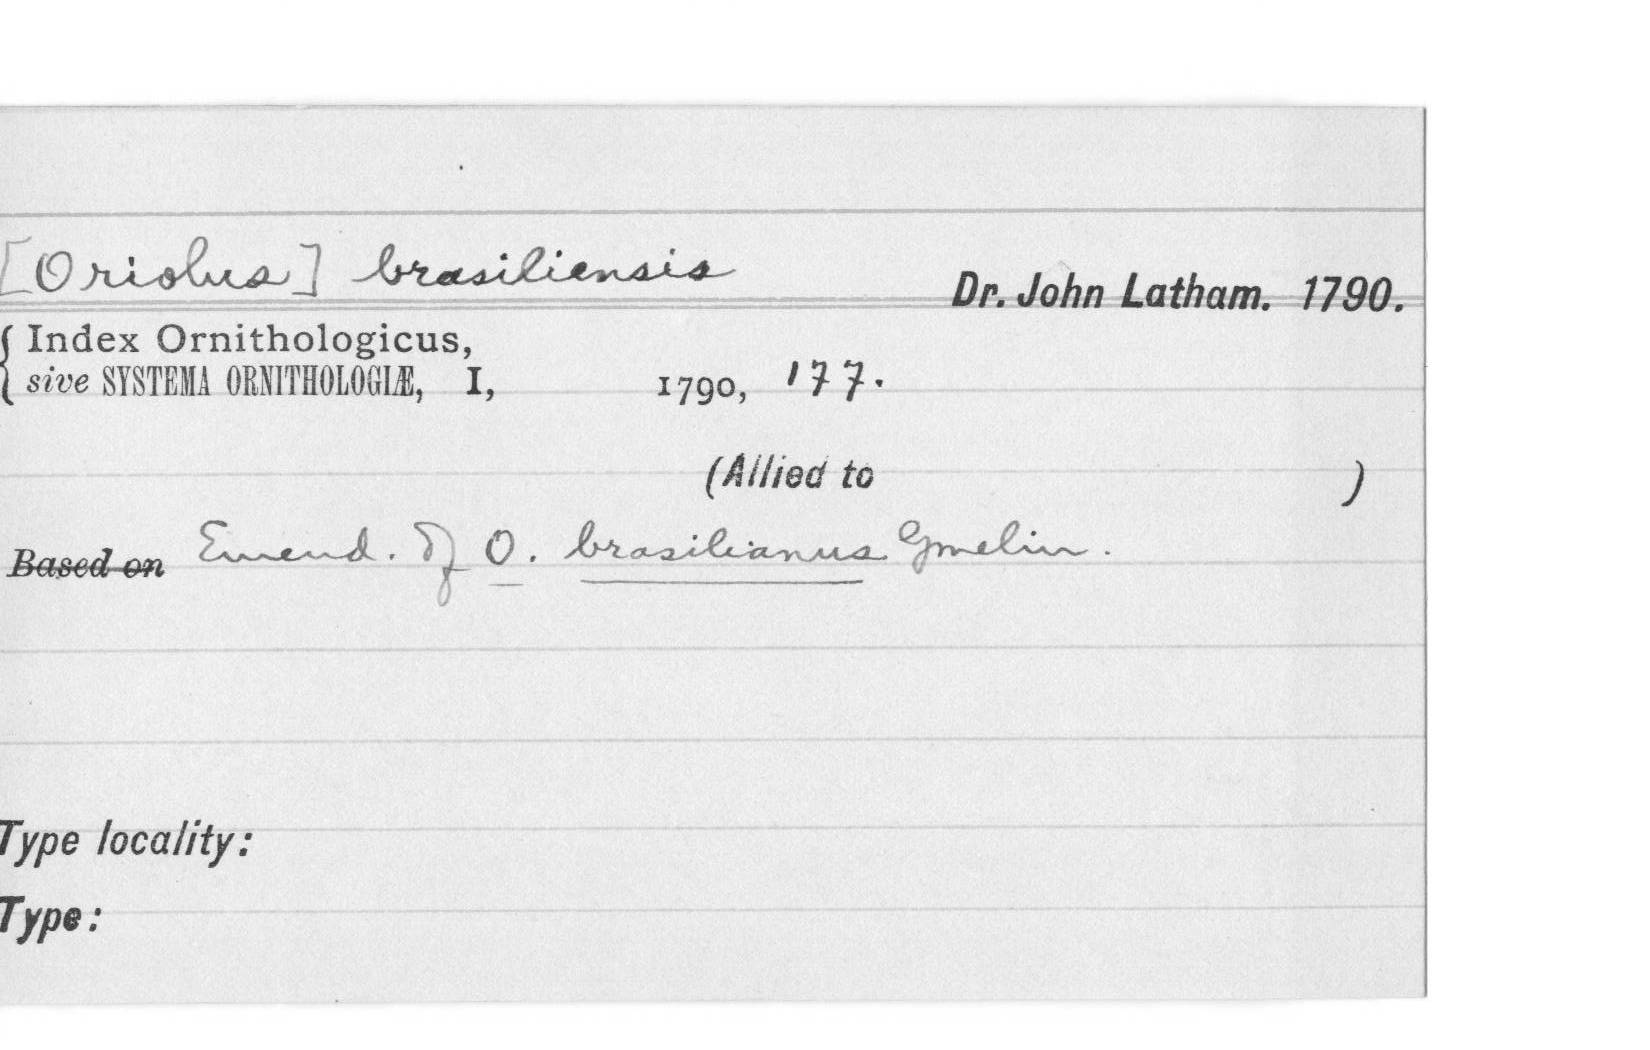 [Oriolus] brasiliensis
Dr. John Latham. 1790.
Index Ornithologicus,
sive SYSTEMA ORNITHOLOGIÆ, I, 1790, 177.
(Allied to )
Based on Emend. of O. brasilianus Gmelin.
Type locality:
Type: